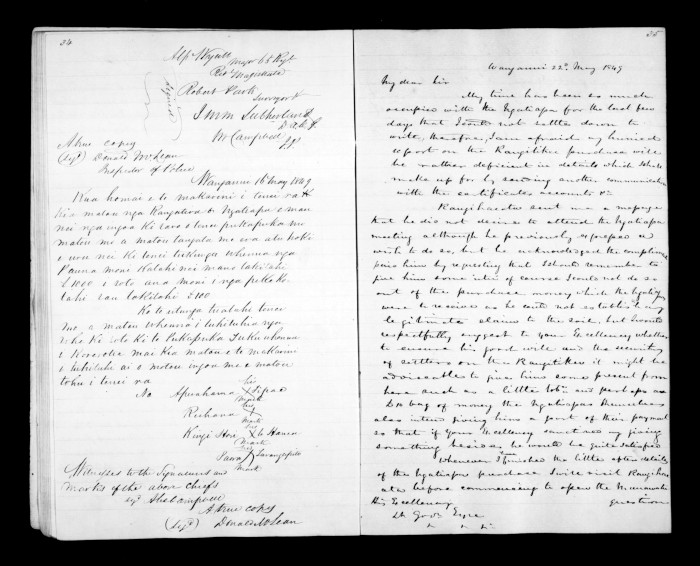 34
Alf Wyatt Major 65 Regt
Res Magistrate
Robert Park
Surveyor &
Jnm Sutherland
D.A.Q.
W Campbell
JP
A true copy
(Sigd) Donald McLean
Inspector of Police
Wanganui 16 May 1849
Kua homai e te makarini i tenei ra
kia matou nga Rangatira o Ngatiapa e mau
nei nga ingoa ki raro o tenei pukapuka mo
matou mo a matou tangata mo era atu hoki
o nui nei ki tenei tukunga whenua nga
Pauna moni kotahi nei mano takitahi
£1000 i roto ana moni i nga
tahi rau takitahi £100
Ko te utunga tuatahi tenei
mo a matou whenua i tuhituhia nga
ki roto ki te Pukapuka Tuku whenua
i Korerotia mai kia matou e te makarini
i tuhituhi ai o matou ingoa me o matou
tohu i tenei ra
Na Apirahama his X mark Tipae
Reihana his X mark
Kingi Hori his X mark te Hanea
Tawa X mark
Witnesses to the Signatures and
marks of the above chiefs
sigd Campbell
A true copy
(Sigd) Donald McLean
35
Wanganui 22d May 1849
My dear Sir
My time has been so much
occupied with the Ngatiapa for the last few
days that I could not settle down to
write, therefore, I am afraid my hurried
report on the Rangitikei purchase will
be rather deficient in details which I shall
make up for by sending another communication
with the certificates accounts &c
Rangihaeata sent me a message
that he did not desire to attend the Ngatiapa
meeting although he previously expressed a
wish to do so, but he acknowledged the compliment
paid him by requesting that I should remember to
give him some utu of course I could not do so
out of the purchase money which the Ngatiapa
were to receive as he could not establish any
legitimate claim to the soil, but I would
respectfully suggest to your Excellency whether
to ensure his good will and the security
of settlers on the Rangitikei it might be
adviseable to give him some present from
here such as a little tobo and perhaps a
bag of money the Ngatiapas themselves
also intend giving him a part of their payment
so that if your Excellency sanctioned my giving
something besides he would be quite satisfied
Whenever I finished the little after details
of the Ngatiapa purchase I will visit Rangihae
ata before commencing to open the Manawatu
His Excellency question
Lt Govr Eyre